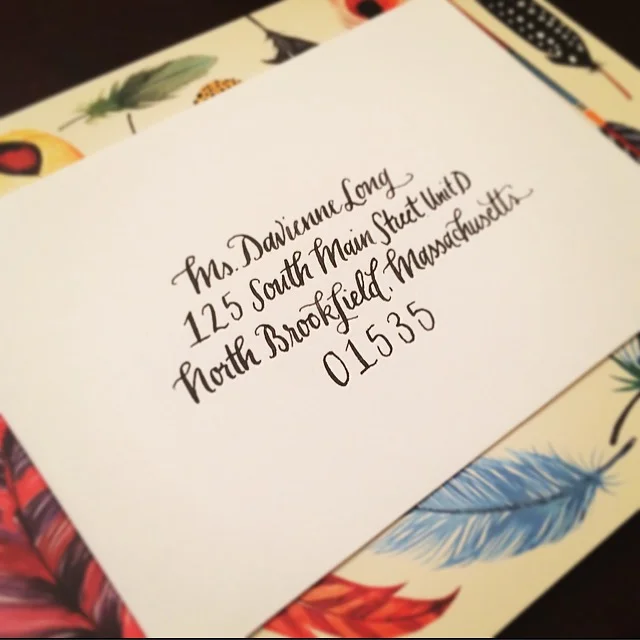 Ms. Davienne Long
125 South Main Street Unit D
North Brookfield, Massachusetts
01535